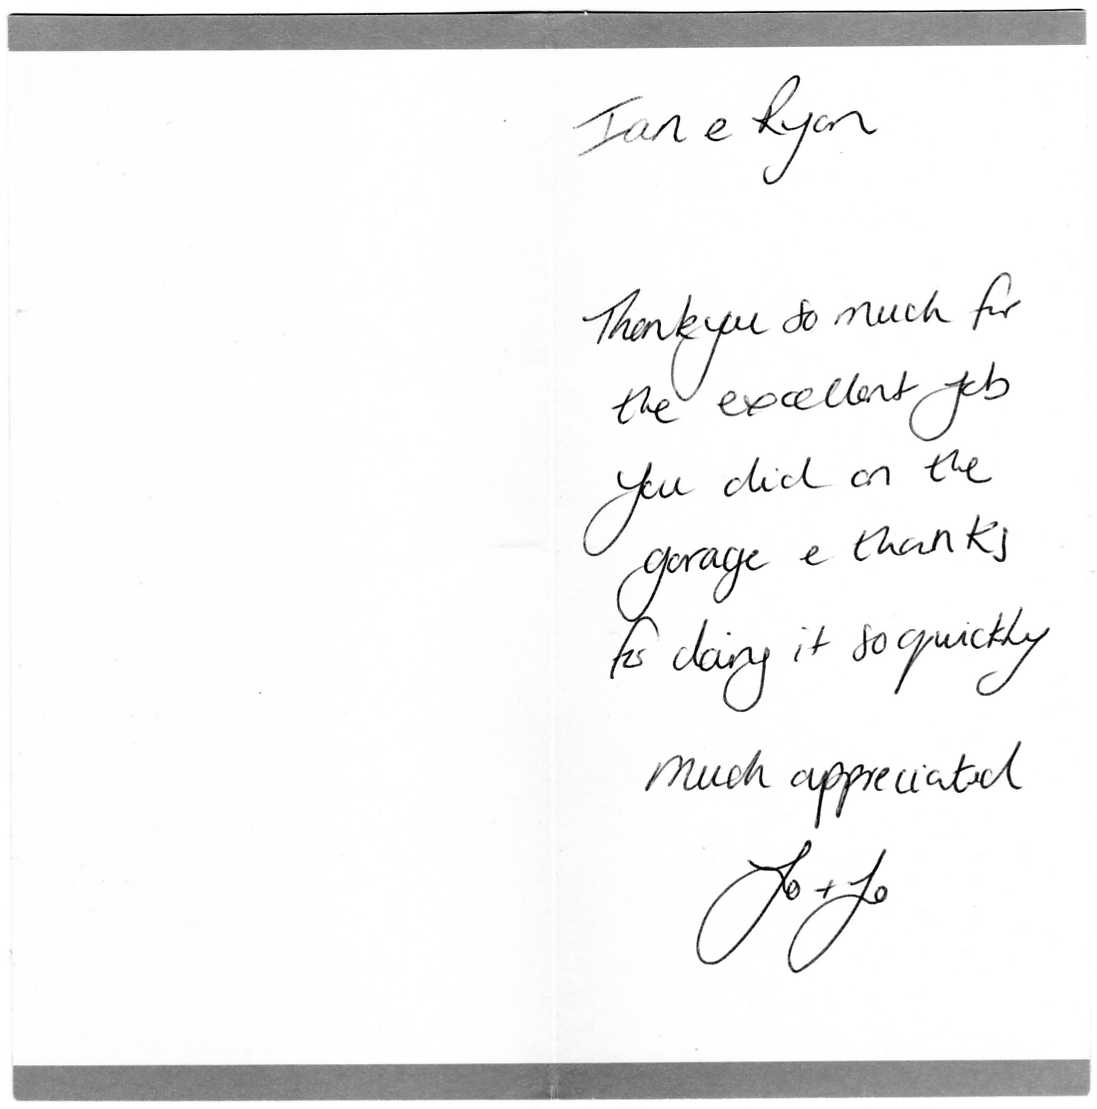 Ian e Ryan
Thankyou so much for
the excellent job
you did on the
garage e thanks
for doing it so quickly
much appreciated
Jo + Jo